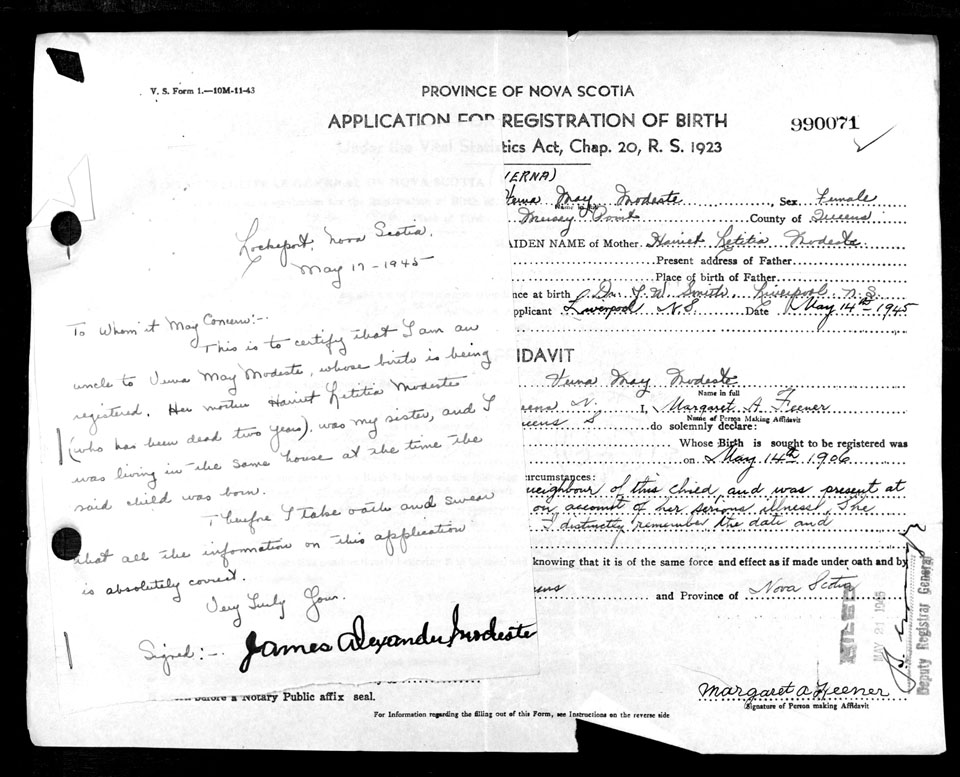 V. S. Form 1.—10M-11-43
PROVINCE OF NOVA SCOTIA
APPLICATION FOR REGISTRATION OF BIRTH
990071
tics Act, Chap. 20, R. S. 1923
(ERNA)
Verna May Modeste, Sex Female
Name in full
Mersey Point County of Queens
AIDEN NAME of Mother. Harriet Letitia Modeste
Present address of Father
Place of birth of Father
nce at birth Dr. J. W. Smith Liverpool N.S.
pplicant Liverpool N.S. Date May 14th 1945
IDAVIT
Verna May Modeste
Name in full
I, Margaret A. Feener
Name of Person Making Affidavit
ueens S do solemnly declare:
Whose Birth is sought to be registered was
on May 14th 1906
ircumstances:
neighbour of this child, and was present at
on account of her serious illness, She
I distinctly remember the date and
knowing that it is of the same force and effect as if made under oath and by
eens and Province of Nova Scotia
FILED
MAY 21 1945
Deputy Registrar General
Margaret A Feener
(Signature of Person making Affidavit
before a Notary Public affix seal.
For Information regarding the filling out of this Form, see Instructions on the reverse side
Lockeport, Nova Scotia.
May 17-1945
To Whom it May Concern:-
This is to certify that I am an
uncle to Verna May Modeste, whose birth is being
registered. Her mother Harriet Letitia Modeste
(who has been dead two years), was my sister, and I
was living in the same house at the time the
said child was born.
Therefore I take oath and swear
that all the information on this application
is absolutely correct.
Very Truly Your.
Signed:- James Alexander Modeste